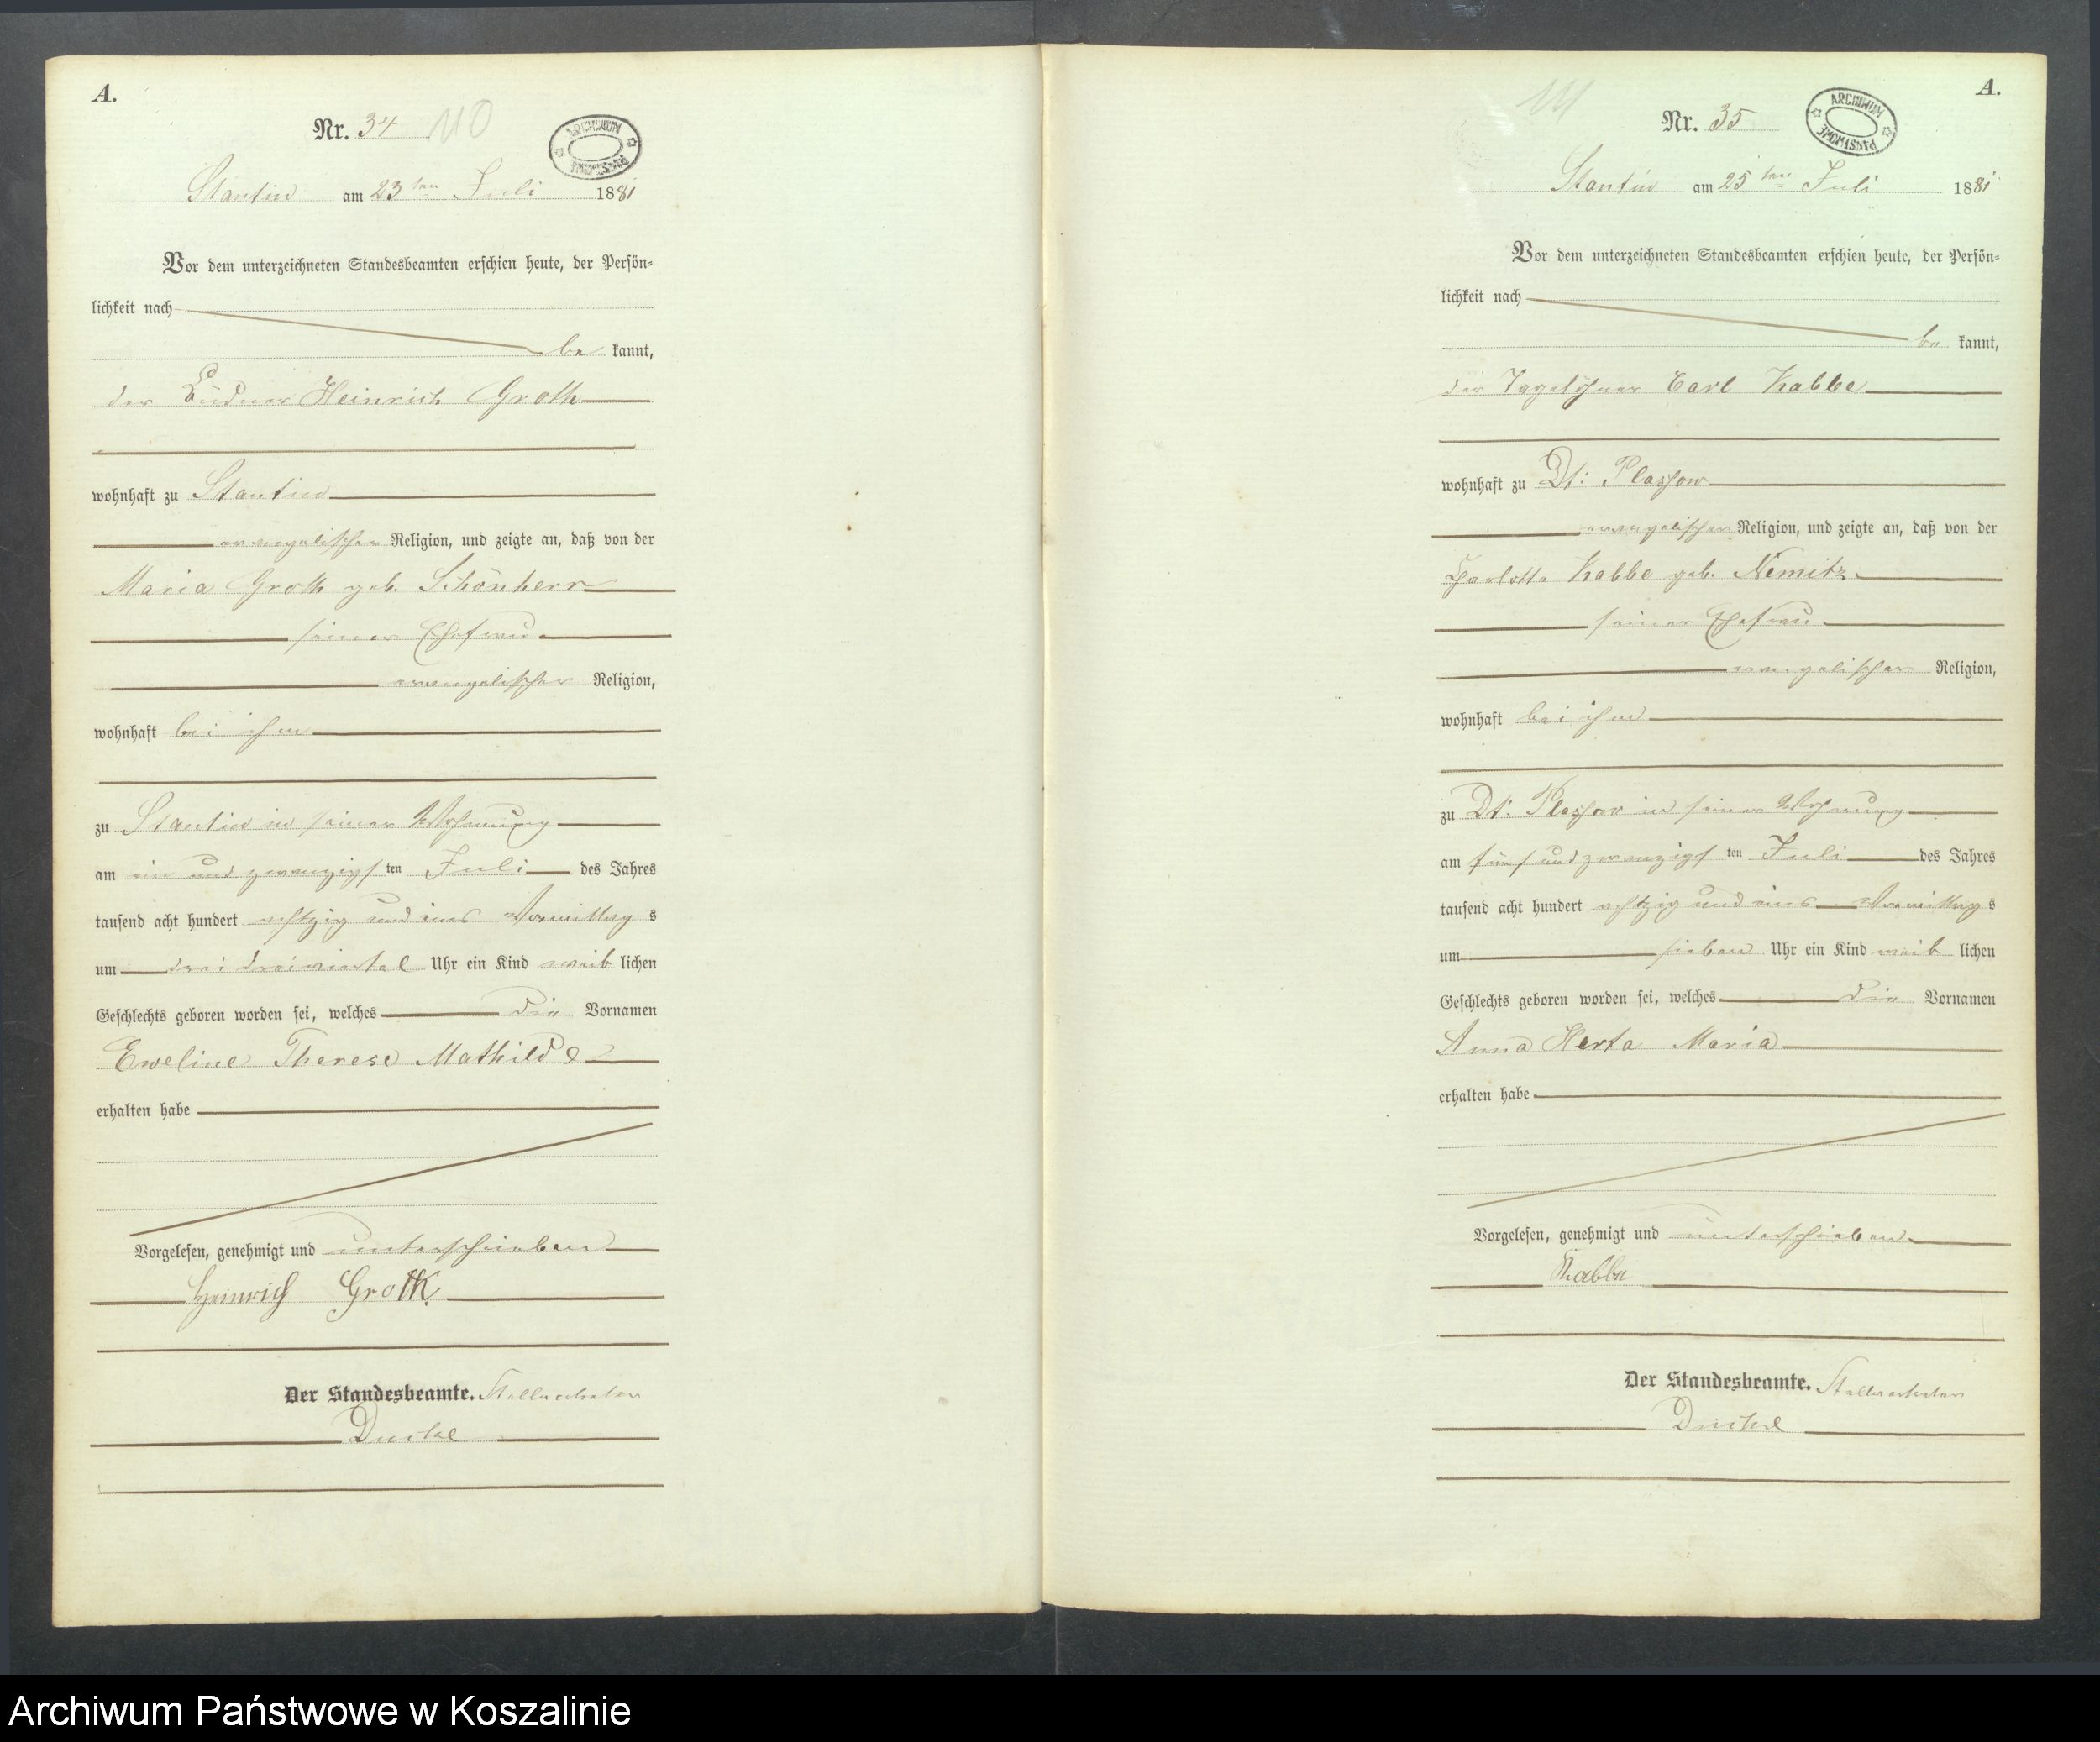 A.
Nr. 34 110
ARCHIWUM PAŃSTWOWE
Stantin am 23ten Juli 1881
Vor dem unterzeichneten Standesbeamten erschien heute, der Persön=
lichkeit nach
be kannt,
der Büdner Heinrich Groth
wohnhaft zu Stantin
evangelischer Religion, und zeigte an, daß von der
Maria Groth geb. Schönherr
seiner Ehefrau
evangelischer Religion,
wohnhaft bei ihm
zu Stantin in seiner Wohnung
am ein und zwanzigsten Juli des Jahres
tausend acht hundert achtzig und eins Vormittags
um drei dreiviertel Uhr ein Kind weiblichen
Geschlechts geboren worden sei, welches die Vornamen
Eweline Therese Mathilde
erhalten habe
Vorgelesen, genehmigt und unterschrieben
Heinrich Groth
Der Standesbeamte. Stellvertreter
A.
Nr. 35 111
ARCHIWUM PAŃSTWOWE
Stantin am 25ten Juli 1881
Vor dem unterzeichneten Standesbeamten erschien heute, der Persön=
lichkeit nach
be kannt,
der Tagelöhner Carl Kabbe
wohnhaft zu Dt: Plassow
evangelischer Religion, und zeigte an, daß von der
Charlotte Kabbe geb. Nemitz
seiner Ehefrau
evangelischer Religion,
wohnhaft bei ihm
zu Dt: Plassow in seiner Wohnung
am fünf und zwanzigsten Juli des Jahres
tausend acht hundert achtzig und eins Vormittags
um sieben Uhr ein Kind weiblichen
Geschlechts geboren worden sei, welches die Vornamen
Anna Herta Maria
erhalten habe
Vorgelesen, genehmigt und unterschrieben
Kabbe
Der Standesbeamte. Stellvertreter
Archiwum Państwowe w Koszalinie